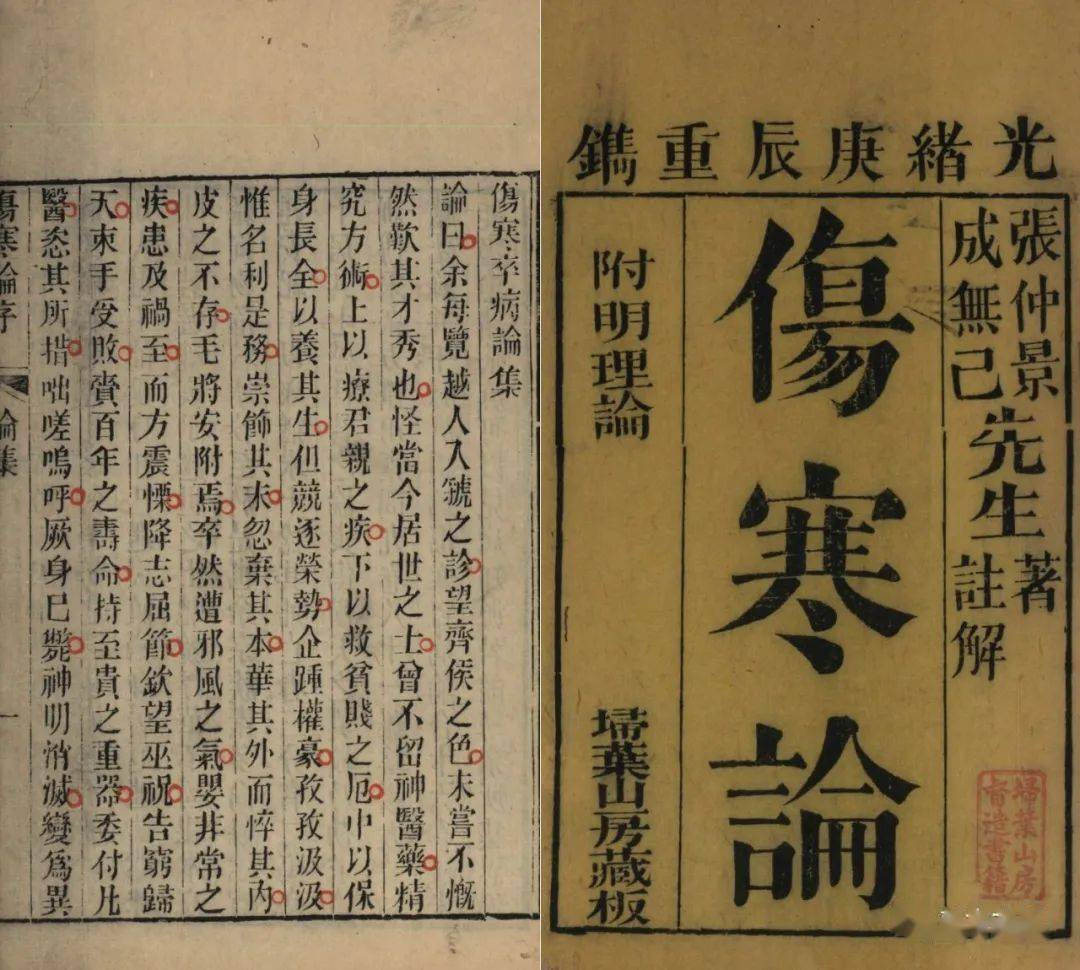 光緒庚辰重鐫
張仲景先生著
成無己先生註解
傷寒論
附明理論
埽葉山房藏板
埽葉山房
督造書籍
傷寒卒病論集
論曰余每覽越人入虢之診望齊侯之色未嘗不慨
然歎其才秀也怪當今居世之士曾不留神醫藥精
究方術上以療君親之疾下以救貧賤之厄中以保
身長全以養其生但競逐榮勢企踵權豪孜孜汲汲
惟名利是務崇飾其末忽棄其本華其外而悴其內
皮之不存毛將安附焉卒然遭邪風之氣嬰非常之
疾患及禍至而方震慄降志屈節欽望巫祝告窮歸
天束手受敗賫百年之壽命持至貴之重器委付凡
醫恣其所措咄嗟嗚呼厥身已斃神明消滅變爲異
傷寒論序 論集 一